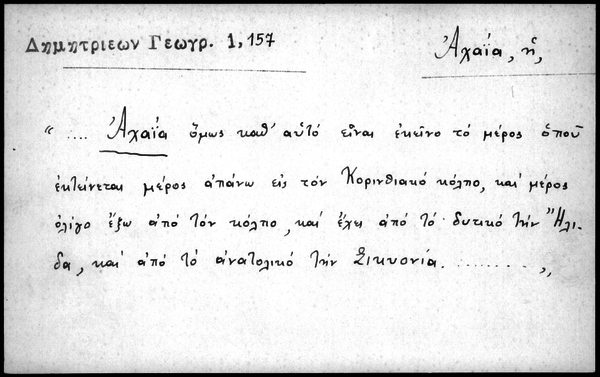 Δημητριεων Γεωγρ. 1, 157
Ἀχαΐα, ἡ,
“ .... Ἀχαΐα ὅμως καθ' αὑτό εἶναι ἐκεῖνο τό μέρος ὁποῦ
ἐκτείνεται μέρος ἀπάνω εἰς τόν Κορινθιακό κόλπο, καί μέρος
ὀλίγο ἔξω ἀπό τόν κόλπο, καί ἔχει ἀπό τό δυτικό τήν Ἤλι-
δα, καί ἀπό τό ἀνατολικό τήν Σικυονία. ......... „